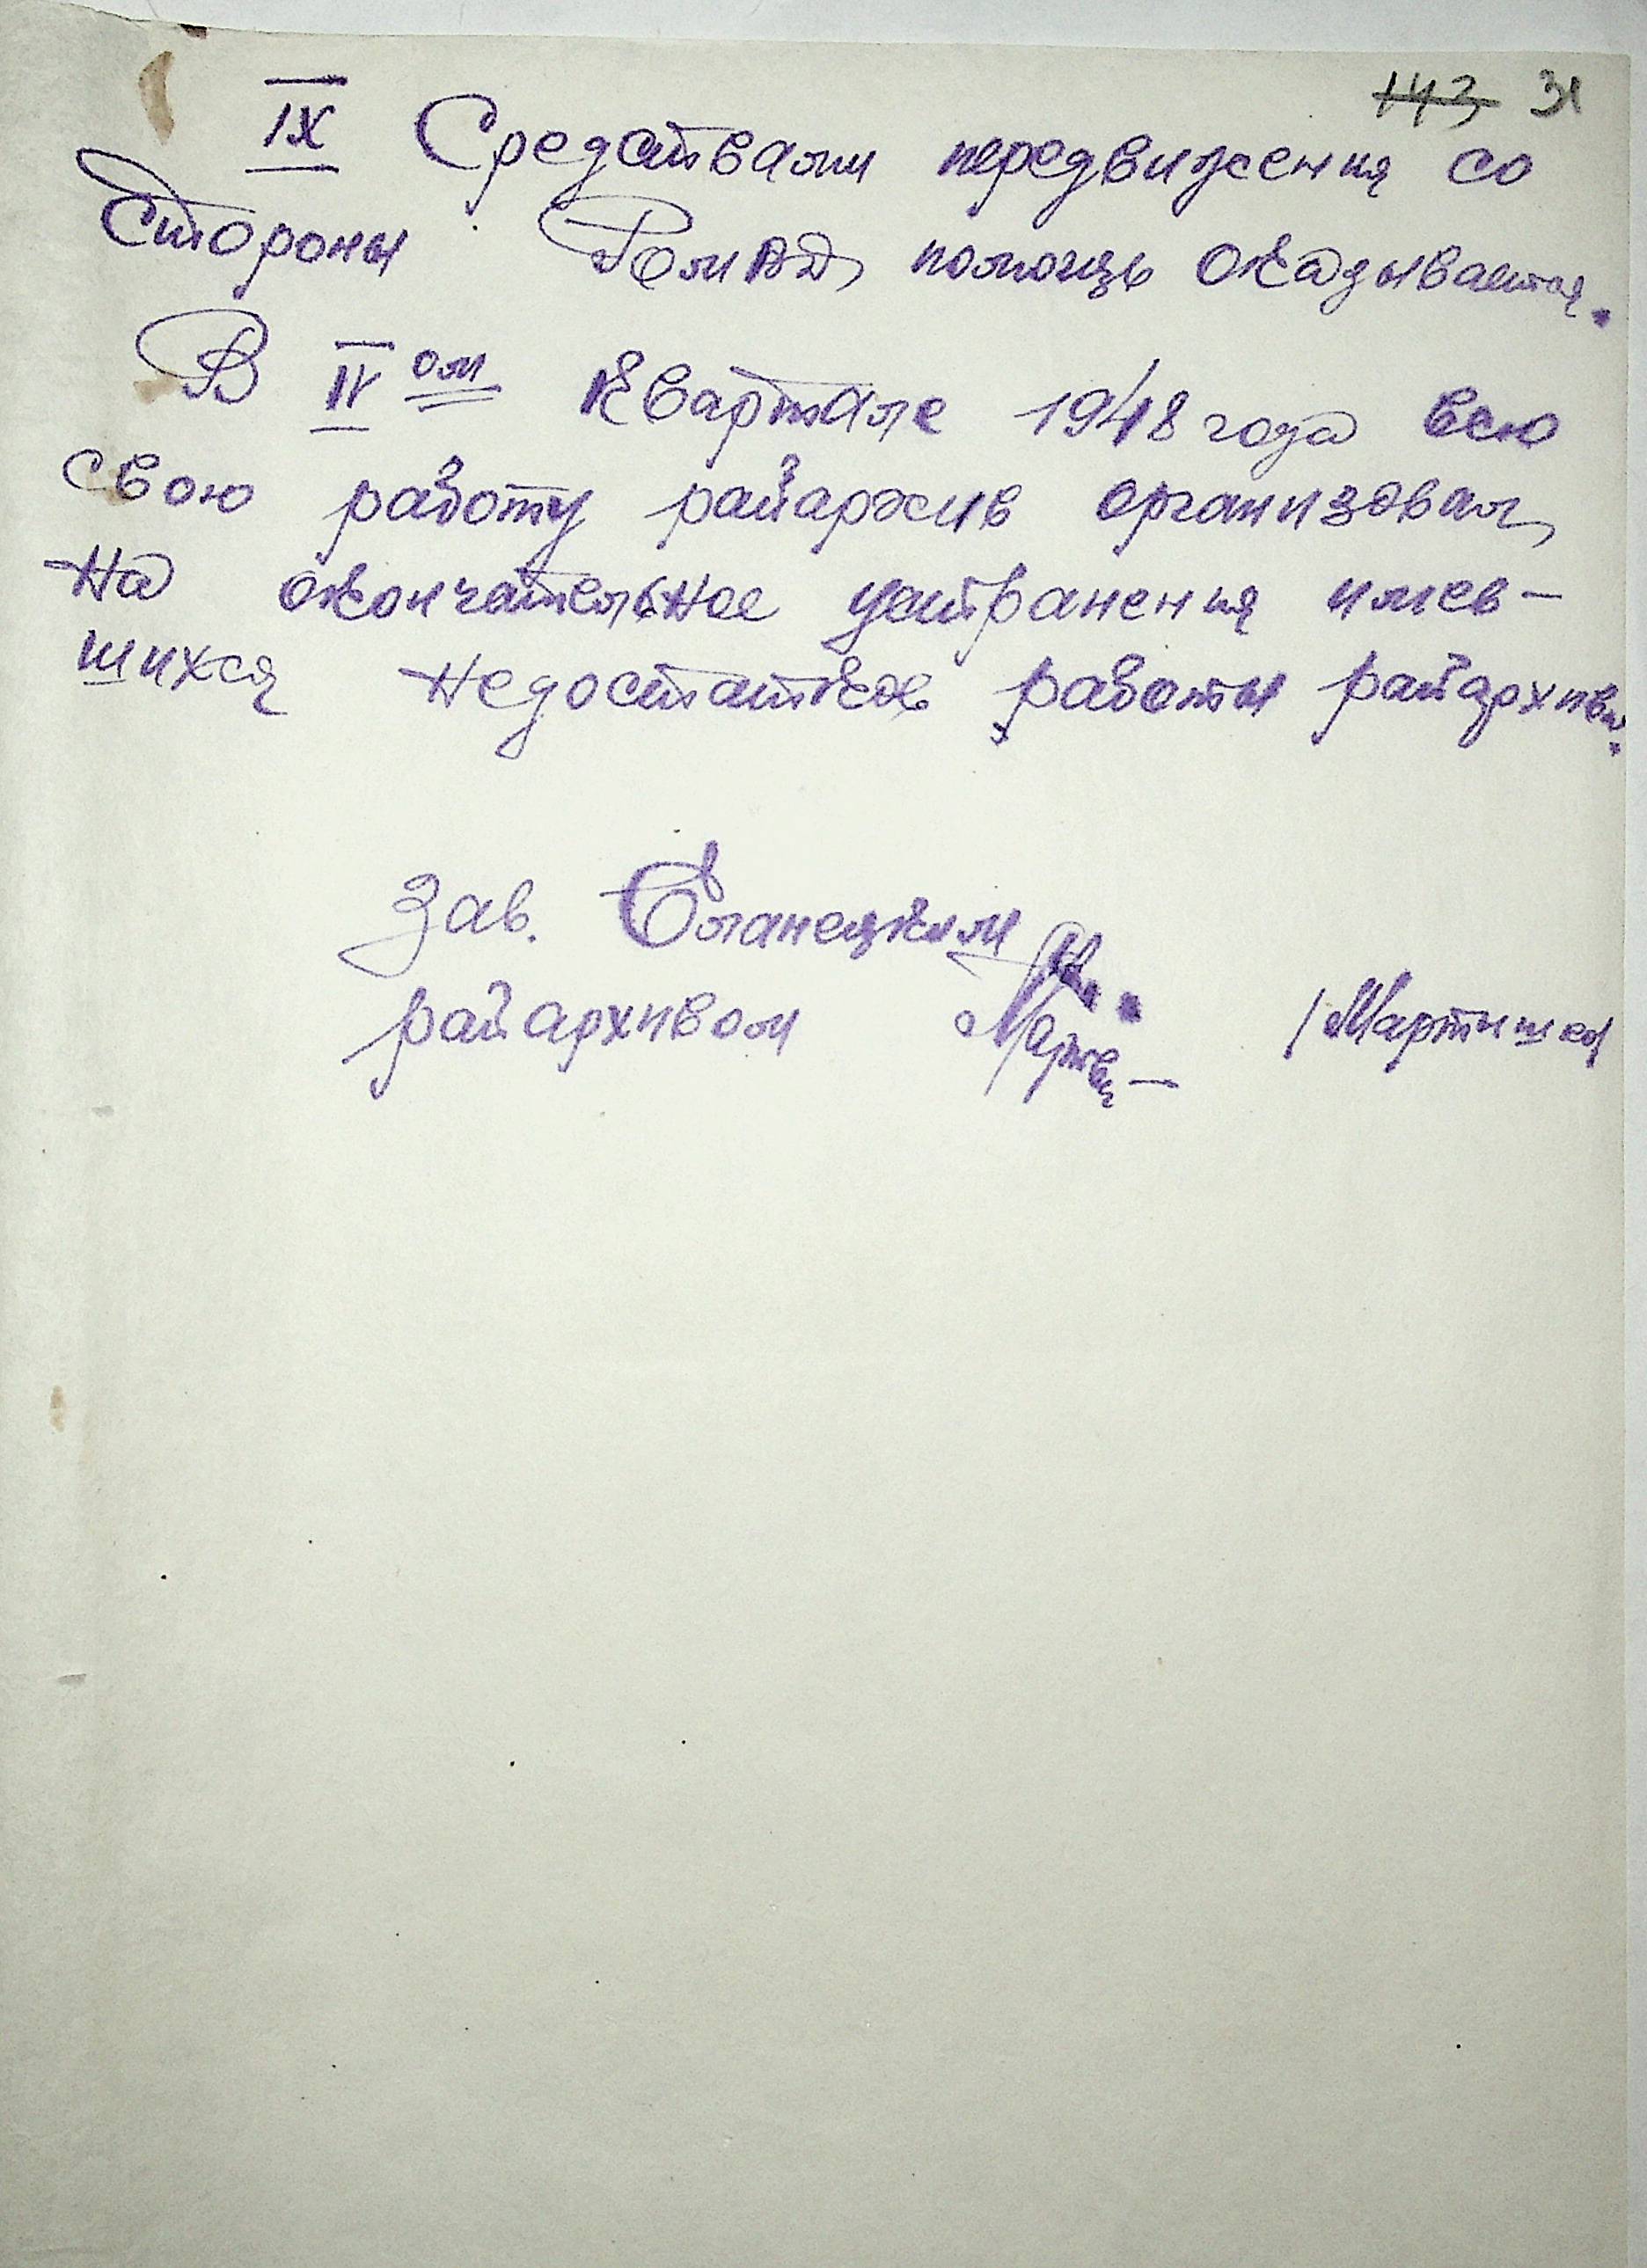 143 31
IX Средствами передвижения со
стороны РоМВД, помощь оказывается.
В IV ом квартале 1948 года всю
свою работу райархив организовал,
на окончательное устранения имев-
шихся недостатков работы райархива.
Зав.
райархивом /Мартишев/